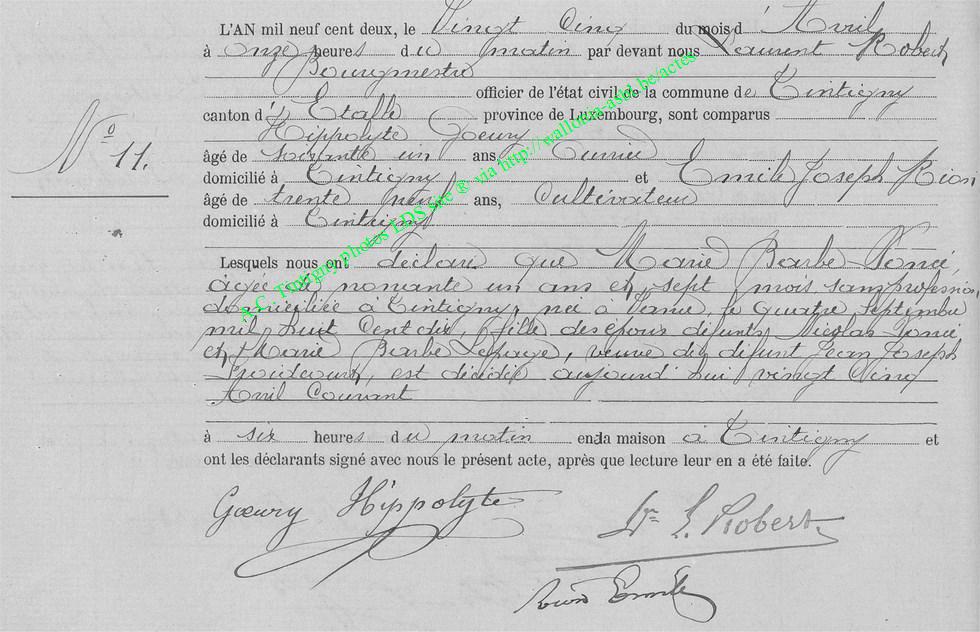 L'AN mil neuf cent deux, le Vingt Cinq du mois d'Avril
à onze heures du matin par devant nous Laurent Robert
Bourgmestre
officier de l'état civil de la commune de Tintigny
canton d' Etalle province de Luxembourg, sont comparus
Hippolyte Goeury
âgé de soixante un ans,
domicilié à Tintigny et Emile Joseph Rion
âgé de trente neuf ans, Cultivateur
domicilié à Tintigny
Lesquels nous ont déclaré que Marie Barbe Poncé,
âgée de nonante un ans et sept mois sans profession
domiciliée à Tintigny, née à le quatre Septembre
mil huit Cent dix, fille des époux défunts Nicolas Poncé
et Marie Barbe Lepage, veuve du défunt Jean Joseph
est décédée aujourd'hui vingt Cinq
Avril Courant
à six heures du matin en la maison à Tintigny et
ont les déclarants signé avec nous le présent acte, après que lecture leur en a été faite.
N° 11.
A.C. Tintigny photos LDS site ® via http://wallonia-asbl.be/actes
Goeury Hippolyte
L. Robert
Rion Emile